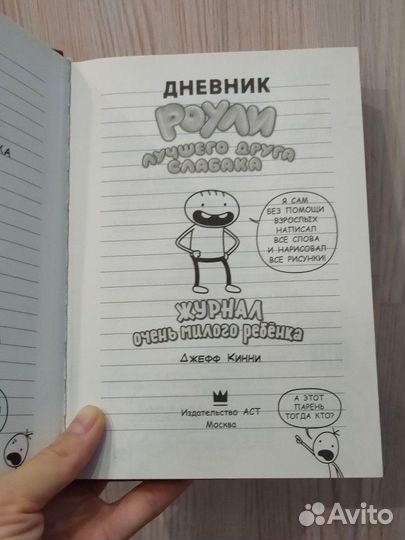 ДНЕВНИК
РОУЛИ
ЛУЧШЕГО ДРУГА
СЛАБАКА
Я САМ
БЕЗ ПОМОЩИ
ВЗРОСЛЫХ
НАПИСАЛ
ВСЕ СЛОВА
И НАРИСОВАЛ
ВСЕ РИСУНКИ!
ЖУРНАЛ
ОЧЕНЬ МИЛОГО РЕБЁНКА
ДЖЕФФ КИННИ
Издательство АСТ
Москва
А ЭТОТ
ПАРЕНЬ
ТОГДА КТО?
Avito